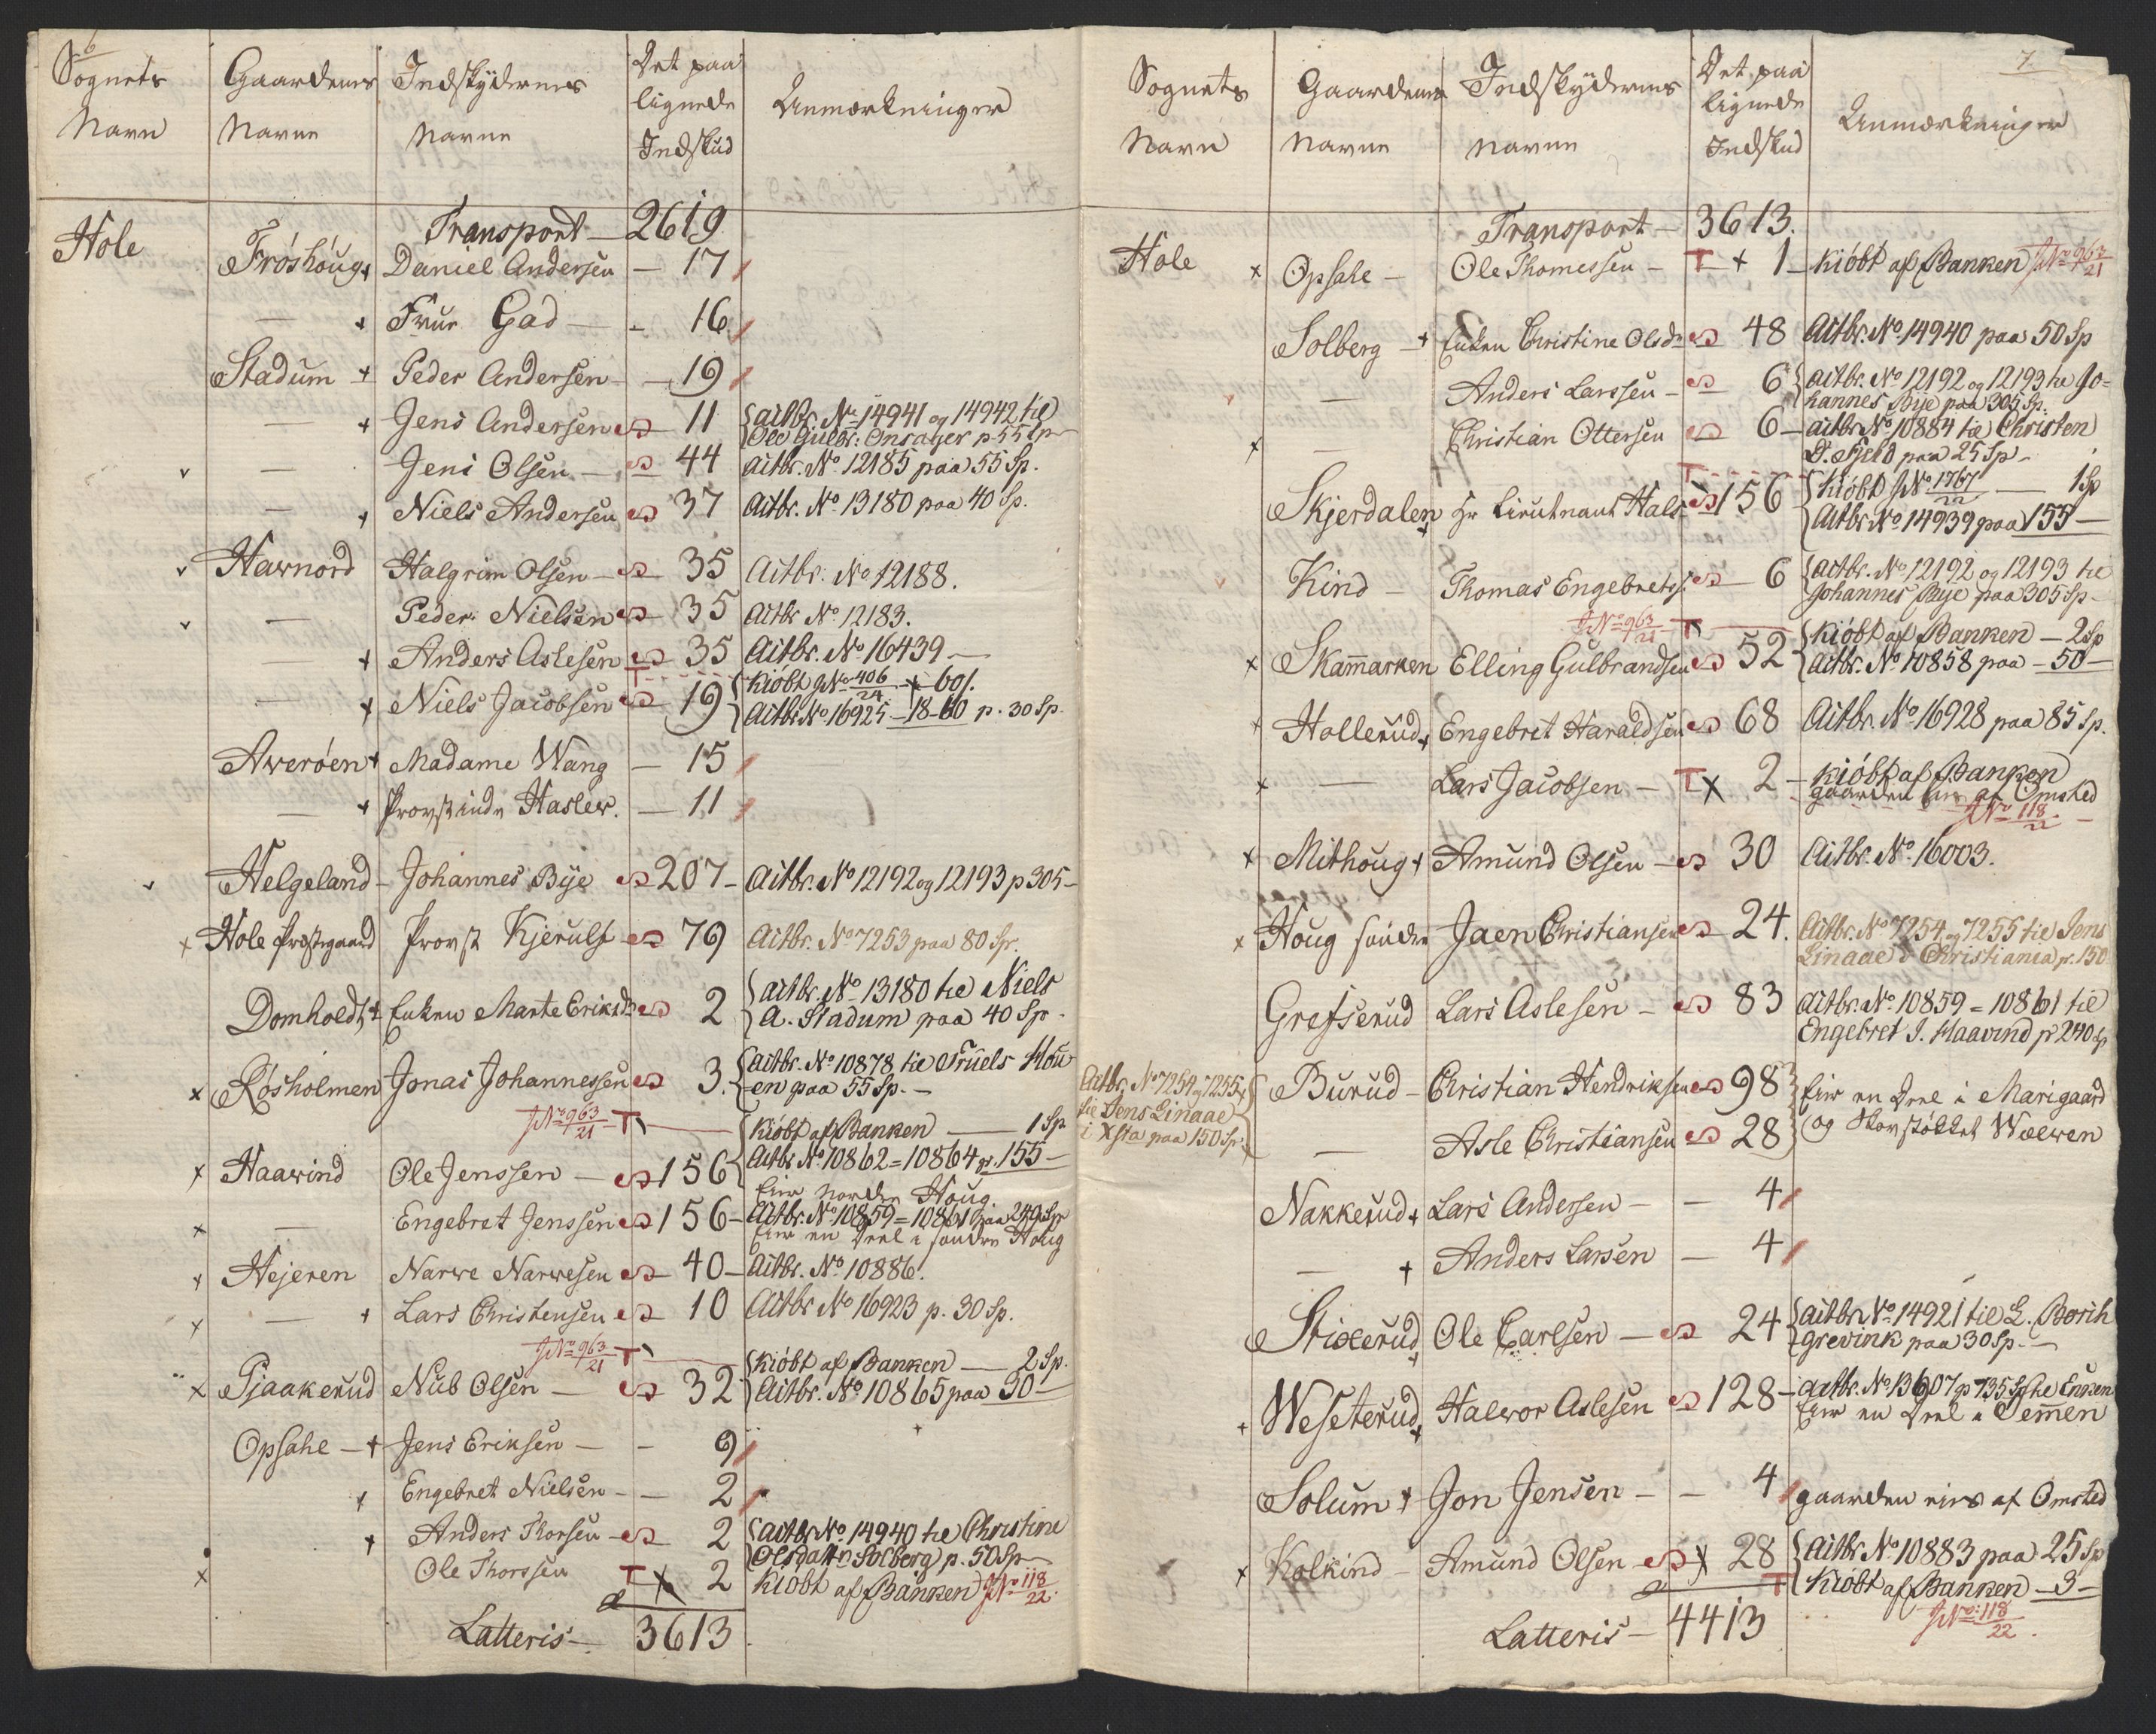 6
Sognets Navn | Gaardenes Navne | Indskydernes Navne | Det paa lignede Indskud | Anmærkninger
Transport — 2619
Hole | Fróshóug + | Daniel Andersen — 17
— + | Frue Gad — - 16
Stadum + | Peder Andersen — 19
— + | Jens Andersen — 11 | Actbr. No 14941 og 14942 til
Ole Gulbr: Onsager p 55 Sp
v — | Jens Olsen — 44 | Actbr. No 12185 paa 55 Sp.
— + | Niels Andersen — 37 | Actbr. No 13180 paa 40 Sp.
v Hawnord | Halgrim Olsen — 35 | Actbr. No 12188.
v — | Peder Nielsen — 35 | Actbr No 12183.
— + | Anders Aslesen — 35 | Actbr. No 16439 —
T
— + | Niels Jacobsen — 19 | Kióbt JNo 406/24 — + 60 s.
Actbr No 16925 — 18-60 p. 30 Sp.
Aweróen + | Madame Wang — 15
— + | Provstinde Haslew. — 11
v Helgeland — | Johannes Bye — 207 — | Actbr. No 12192 og 12193 p 305 —
x Hole Præstegaard | Provst Kjerulf — 79 | Actbr. No 7253 paa 80 Sp.
Domholdt + | Enken Marte Eriksd. — 2 | Actbr. No 13180 til Niels
A. Stadum paa 40 Sp.
x Rósholmen | Jonas Johannessen — 3. | Actbr. No 10878 til Truels Mou
en paa 55 Sp. —
JNo 963/21 T — Kióbt af Banken — 1 Sp
x Haawind | Ole Jenssen — 156 | Actbr No 10862 = 10864 p. 155 —
Eier nordre Houg.
x — | Engebret Jenssen — 156 — | Actbr. No 10859 = 10861 paa 240 Sp
Eier en Deel i sóndre Houg
x Hejeren | Narwe Narwesen — 40 — | Actbr. No 10886.
x — + | Lars Christensen — 10 | Actbr No 16923 p. 30 Sp.
JNo 963/21 T — Kióbt af Banken — 2 Sp.
x Pjaakerud | Nub Olsen — 32 | Actbr. No 10865 paa 30 —
Opsahe — + | Jens Eriksen — - 9
+ | Engebret Nielsen — — 2
+ | Anders Thorsen — 2 | Actbr No. 14940 til Christine
Olsdatter Solberg p. 50 Sp
x | Ole Thorssen T x 2 | Kióbt af Banken JNo 118/22.
Latteris — 3613
7.
Sognets Navn | Gaardenes Navne | Indskydernes Navne | Det paa lignede Indskud | Anmærkninger
Transport — 3613.
Hole | x Opsahe — | Ole Thomessen — T + 1 — | Kióbt af Banken JNo 963/21
Solberg — + | Enken Christine Olsdr — 48 | Actbr. No 14940 paa 50 Sp
— | Anders Larssen — 6 | Actbr. No 12192 og 12193 til Jo=
hannes Bye paa 305 Sp.
x — | Christian Ottersen — 6 — | Actbr No 10884 til Christen
D. Fjeld paa 25 Sp —
T
Skjerdalen + | Hr Lieutnant Hals — 156 | Kióbt JNo 1767/22 — 1 Sp
Actbr No 14939 paa 155 —
Kind — | Thomas Engebrets. — 6 | Actbr. No 12192 og 12193 til
Johannes Bye paa 305 Sp —
JNo 963/21 T — Kióbt af Banken — 2 Sp
x Skam̄arken | Elling Gulbrandsen — 52 | Actbr. No 10858 paa — 50 —
+ Hollerud + | Engebret Haraldsen — 68 | Actbr. No 16928 paa 85 Sp.
x — | Lars Jacobsen — T x 2 — | Kióbt af Banken
gaarden eies af Omsted
JNo 118/22 —
x Mithoug + | Amund Olsen — 30 | Actbr. No. 16003.
x Houg sóndre | Jaen Christiansen — 24. | Actbr. No 7254 og 7255 til Jens
Linaae i Christiania p. 150
Grefserud | Lars Aslesen — 83 | Actbr. No. 10859 = 10861 til
Engebret J. Haavind p 240 Sp
Actbr. No 7254 og 7255
til Jens Linaae
i Xsta paa 150 Sp.
Burud — | Christian Hendriksen — 98 | Eier en Deel i Marigaard
— | Asle Christiansen — 28 | og Skovstókket Wælwen
Nakkerud + | Lars Andersen — — 4
— + | Anders Larsen — 4
Stixerud + | Ole Carlsen — 24 | Actbr. No 14921 til L. Borch
grevink paa 30 Sp. —
+ Weseterud + | Halwor Aslesen — 128 — | Actbr. No 13607 p 135 Sp til Enken
Eier en Deel i Tem̄en
Solum + | Jon Jensen — — 4 | gaarden eies af Omsted
x Kolkind — | Amund Olsen — x 28 | Actbr. No 10883 paa 25 Sp
T Kióbt af Banken — 3 —
JNo: 118/22.
Latteris — 4413